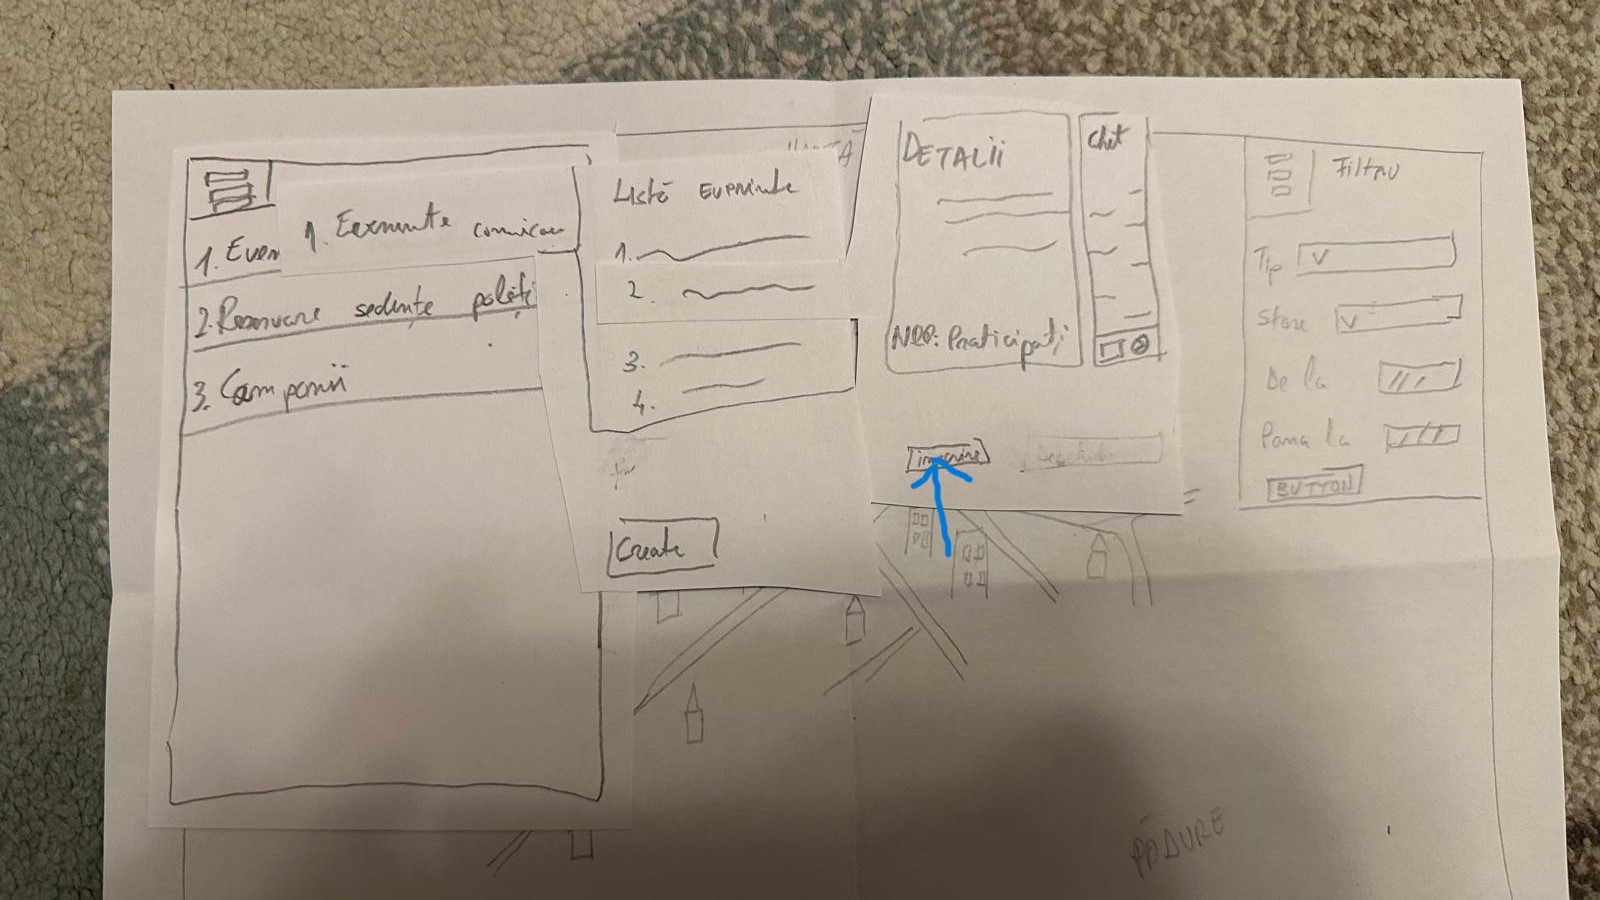 1. Even
1. Evenimente comunicare
2. Rezervare sedințe poliți
3. Campanii
Listă evenimente
1.
2.
3.
4.
Create
DETALII
NRP: Praticipați
Chat
înscriere
Filtru
Tip V
Stare V
De la
Pana la
BUTTON
PĂDURE